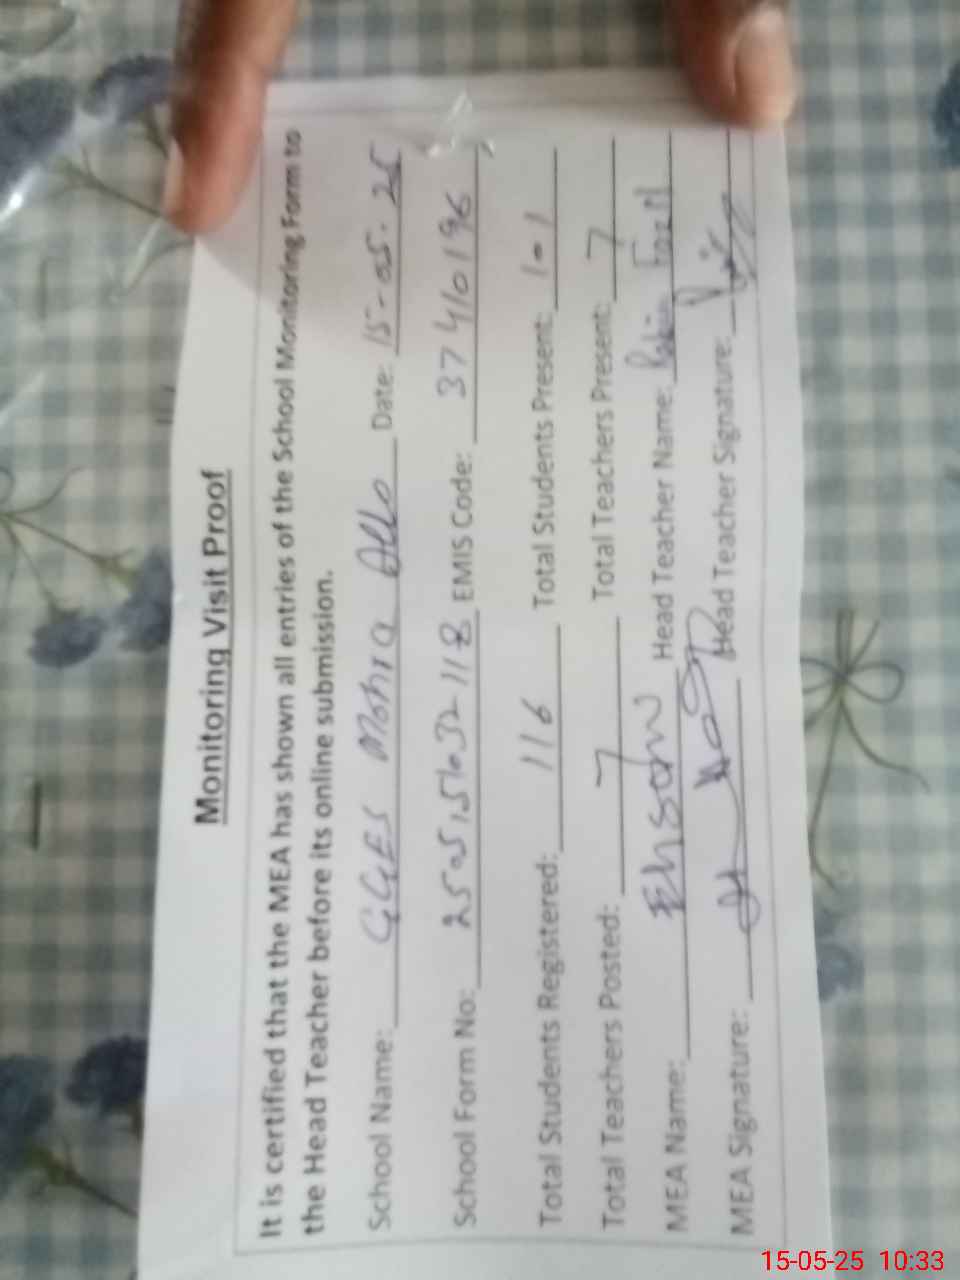 Monitoring Visit Proof
It is certified that the MEA has shown all entries of the School Monitoring Form to
the Head Teacher before its online submission.
School Name: GGES Mohra Date: 15-05-25
School Form No: EMIS Code: 37410196
Total Students Registered: 116 Total Students Present: 101
Total Teachers Posted: 7 Total Teachers Present: 7
MEA Name: Head Teacher Name:
MEA Signature: Head Teacher Signature:
15-05-25 10:33